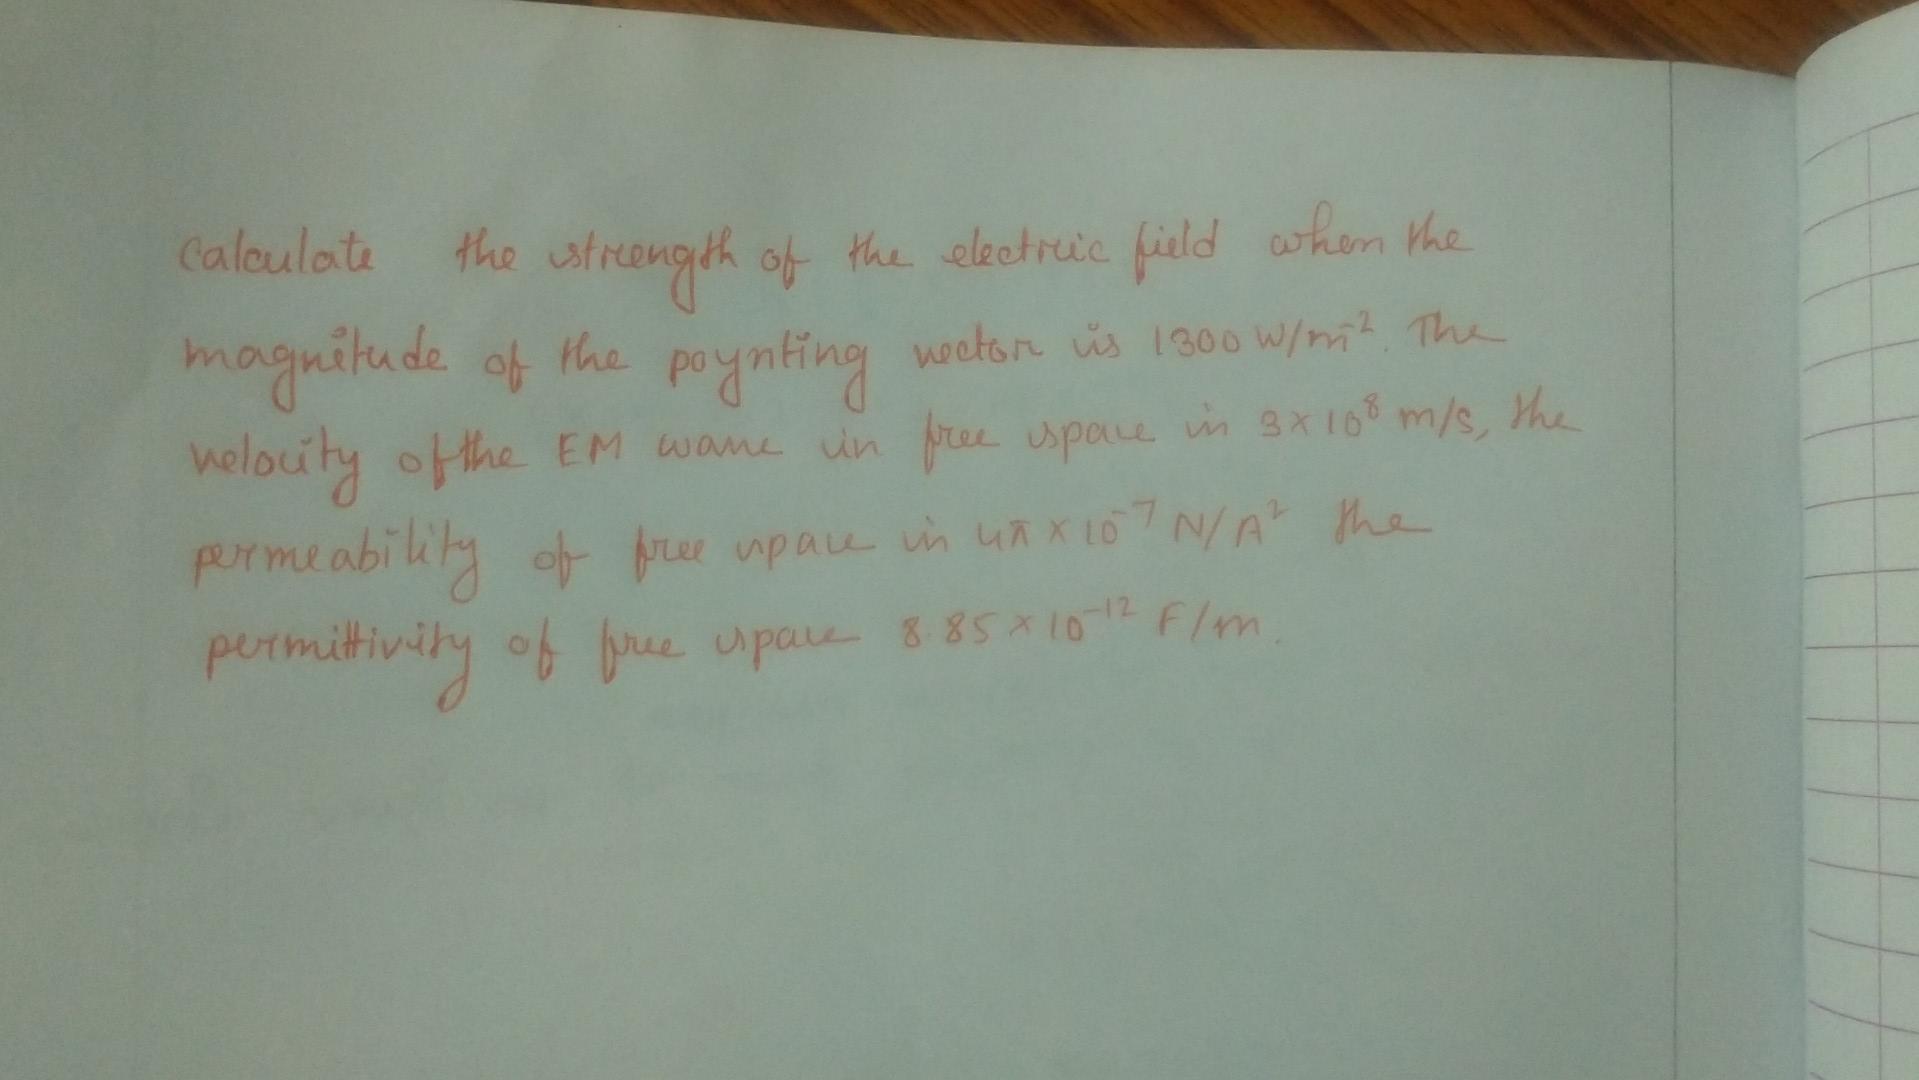 Calculate the strength of the electric field when the
magnitude of the poynting vector is 1300 W/m². The
velocity of the EM wave in free space is 3×10⁸ m/s, the
permeability of free space is 4π × 10⁻⁷ N/A² the
permittivity of free space 8.85 × 10⁻¹² F/m.